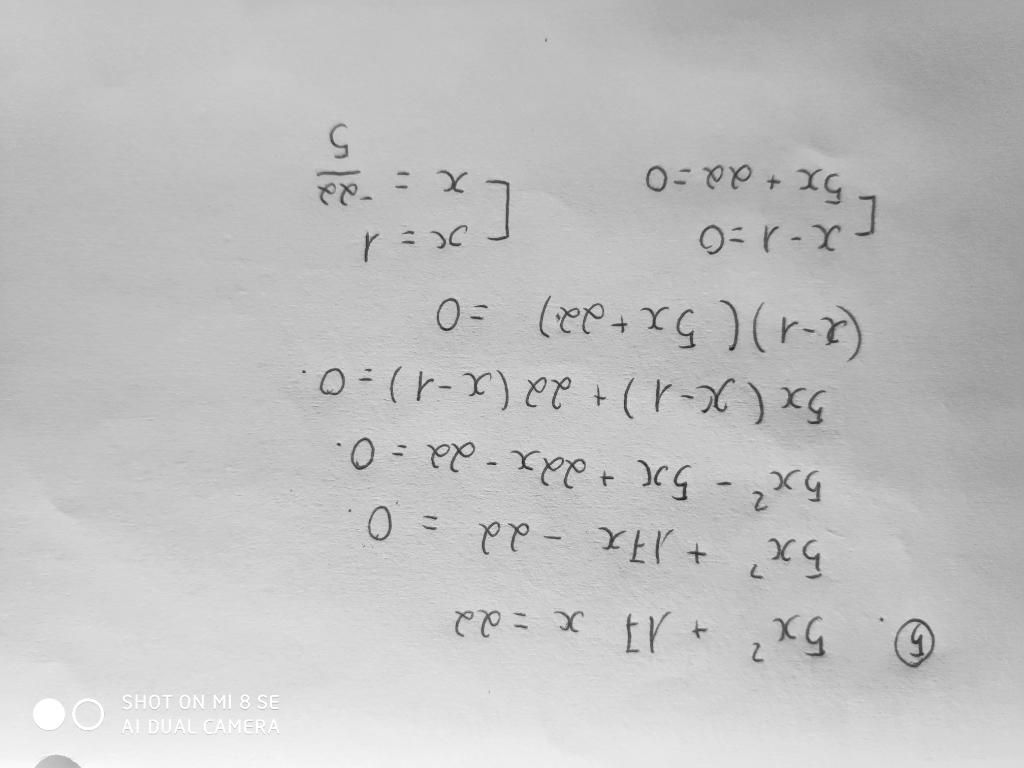 ⑤. 5x² + 17x = 22
5x² + 17x - 22 = 0
5x² - 5x + 22x - 22 = 0.
5x(x-1) + 22(x-1) = 0.
(x-1)(5x+22) = 0
[x - 1 = 0 [x = 1
5x + 22 = 0 x = -22/5
SHOT ON MI 8 SE
AI DUAL CAMERA